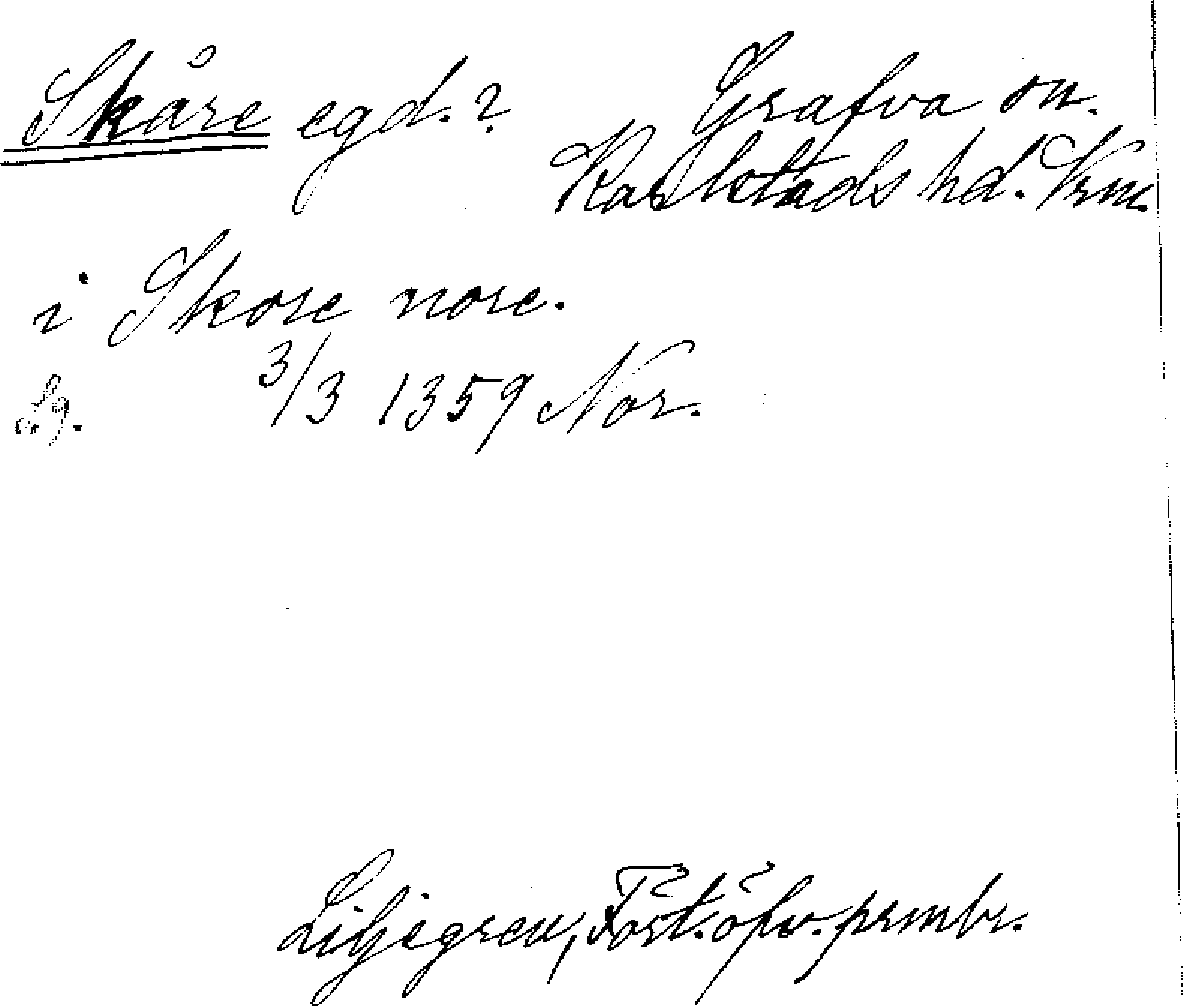 Skåre egd.? Grafva sn.
Karlstads hd. Vrm.
i Skore nore.
Lg. 3/3 1359 Nor.
Liljegren, Fört. öfv. prmbr.